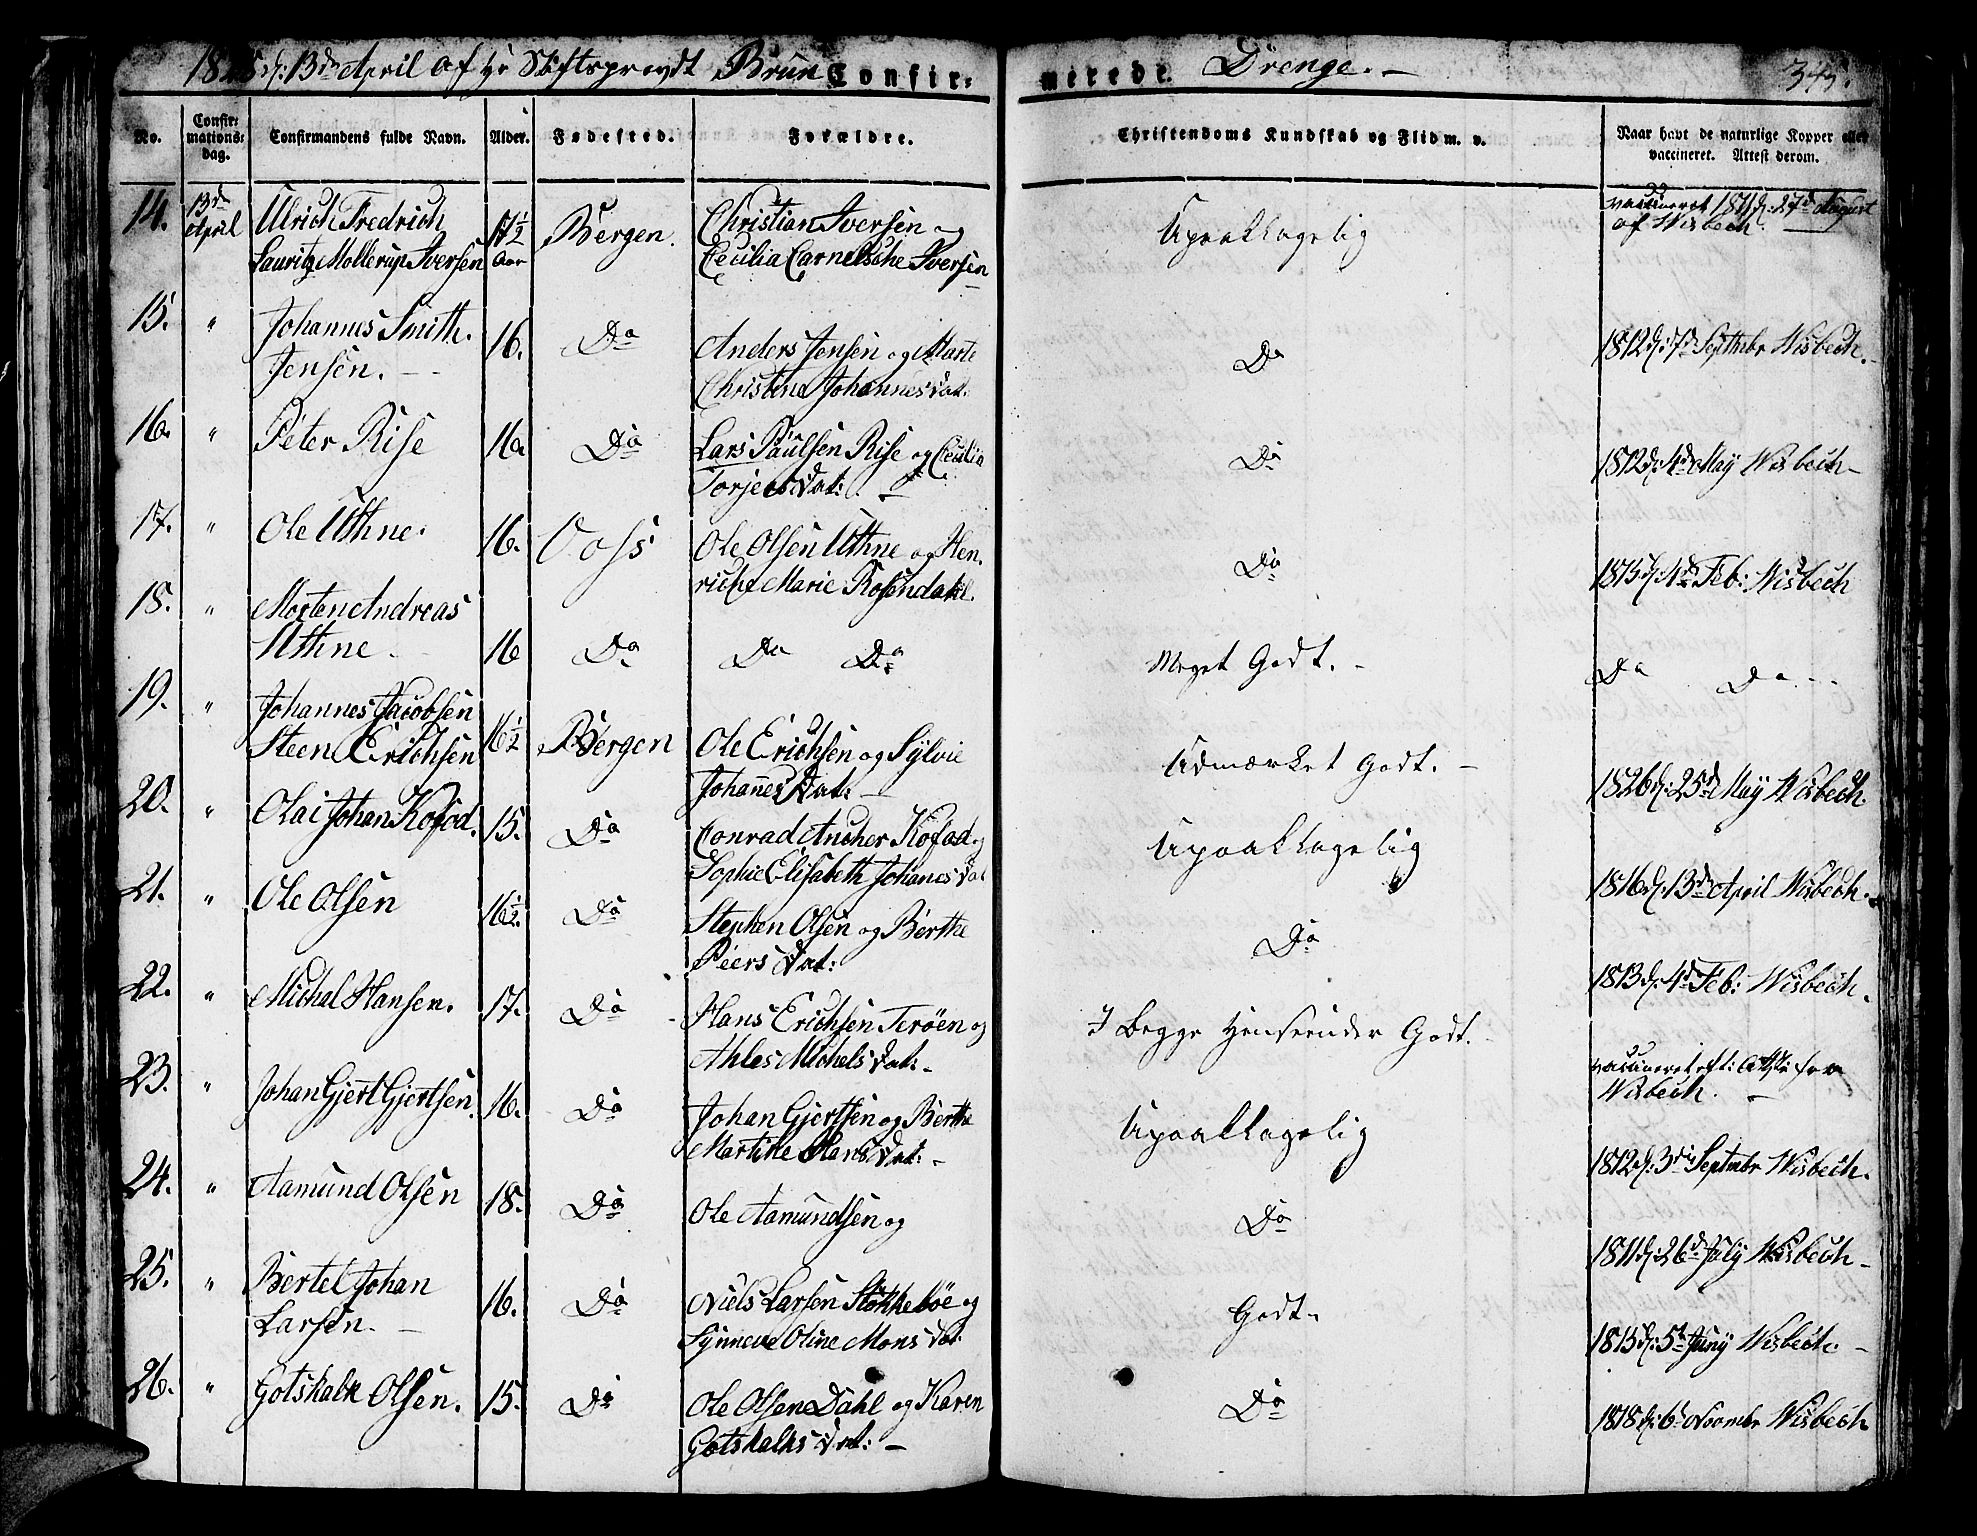 1828 d: 13de April af Hr Stiftsprovst Brun Confir- merede. Drenge. –
No. Confirmations-dag. Confirmandens fulde Navn. Alder. Fødested. Forældre. Christendoms Kundskab og Flid m. v. Naar havt de naturlige Kopper eller vaccineret. Attest derom.
14. 13de April Ulrich Fredrich 17½ Aar Bergen. Christian Iversen og Upaaklagelig vaccineret 1811 d: 27de August
Lauritz Mollerup Iversen Cecilia Iversen af Wisbech.
15. " Johannes Smith Do Anders Jensen og Marte Do 1812 d: 7de Septembr Wisbech.
Jensen. 16. Christine Johannesdat:
16. " Peter Rise 16. Do Lars Paulsen Rise og Cecilia Do 1812 d: 4de May Wisbech
Torjersdat:
17. " Ole Uthne. 16. Voss Ole Olsen Uthne og Hen- Do 1815 d: 4de Feb: Wisbech
riche Marie Rosendahl.
18. " Morten Andreas
Uthne 16 Do Do Do Meget Godt. Do Do
19. " Johannes Jacobsen
Steen Erichsen 16½ Bergen Ole Erichsen og Sylvie Udmærket Godt. 1826 d: 25de May Wisbech.
Johannes Dat:
20. " Olai Johan Kofod. 15. Do Conrad Ancher Kofod og Upaaklagelig 1816 d: 13de April Wisbech.
Sophie Elisabeth Johanesdat
21. " Ole Olsen 16½. Do Stephen Olsen og Berthe Do 1813 d: 4de Feb: Wisbech.
Peersdat:
22. " Michal Hansen. 17. Do Hans Erichsen Terøen og I Begge Henseender Godt. vaccineret eft: Attst: fra
Ahles Michelsdat: Wisbech.
23. " Johan Gjert Gjertsen. 16. Do Johan Gjertsen og Berthe Upaaklagelig 1812 d: 3die Septmbr Wisbech.
Martine Hansdat:
24. " Aamund Olsen 18. Do Ole Aamundsen og Do 1811 d: 26de July Wisbech
25. " Bertel Johan 16. Do Niels Larsen Stokkebøe og Godt. 1815 d: 5te Juny Wisbech.
Larsen. Synneve Oline Monsdat:
26. " Gotskalk Olsen. 15. Do Ole Olsen Dahl og Karen Do 1818 d: 6te Noombr Wisbech
Gotskalksdat: